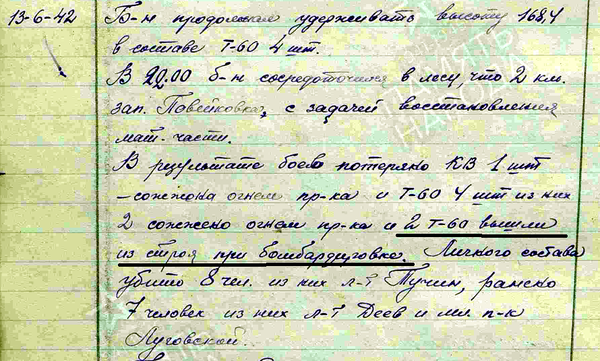 13-6-42 Б-н продолжал удерживать высоту 168,4
в составе Т-60 4 шт.
В 22.00 б-н сосредоточился в лесу, что 2 км.
зап. Павейковка, с задачей восстановления
мат-части.
В результате боев потеряно КВ 1 шт
- сожжена огнем пр-ка и Т-60 4 шт из них
2 сожжено огнем пр-ка и 2 Т-60 вышли
из строя при бомбардировке. Личного состава
убито 8 чел. из них л-т Тучин, ранено
7 человек из них л-т Деев и мл. п-к
Луговской.
ПАМЯТЬ
НАРОДА